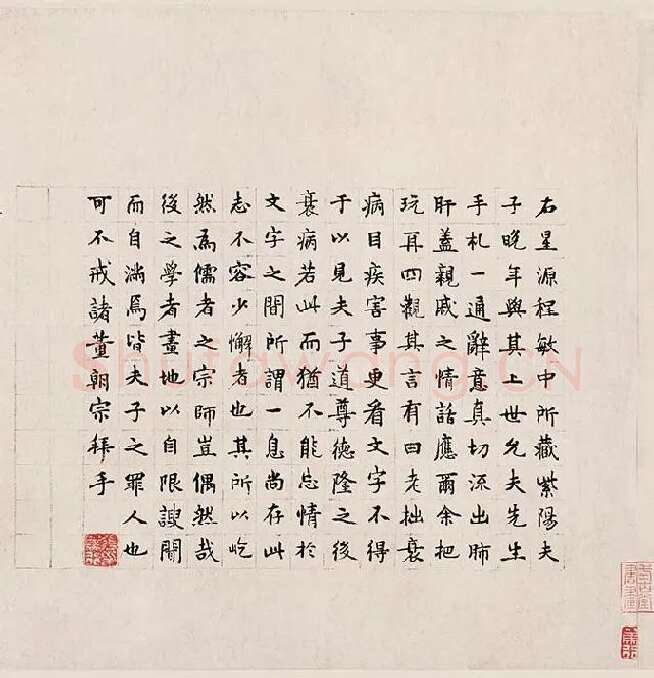 右星源程敏中所藏紫陽夫
子晚年與其上世允夫先生
手札一通辭意真切流出肺
肝蓋親戚之情話應爾余把
玩再四觀其言有曰老拙衰
病目疾害事更看文字不得
于以見夫子道尊德隆之後
衰病若此而猶不能忘情於
文字之間所謂一息尚存此
志不容少懈者也其所以屹
然為儒者之宗師豈偶然哉
後之學者畫地以自限謏聞
而自滿焉皆夫子之罪人也
可不戒諸董朝宗拜手
Shufawang.CN